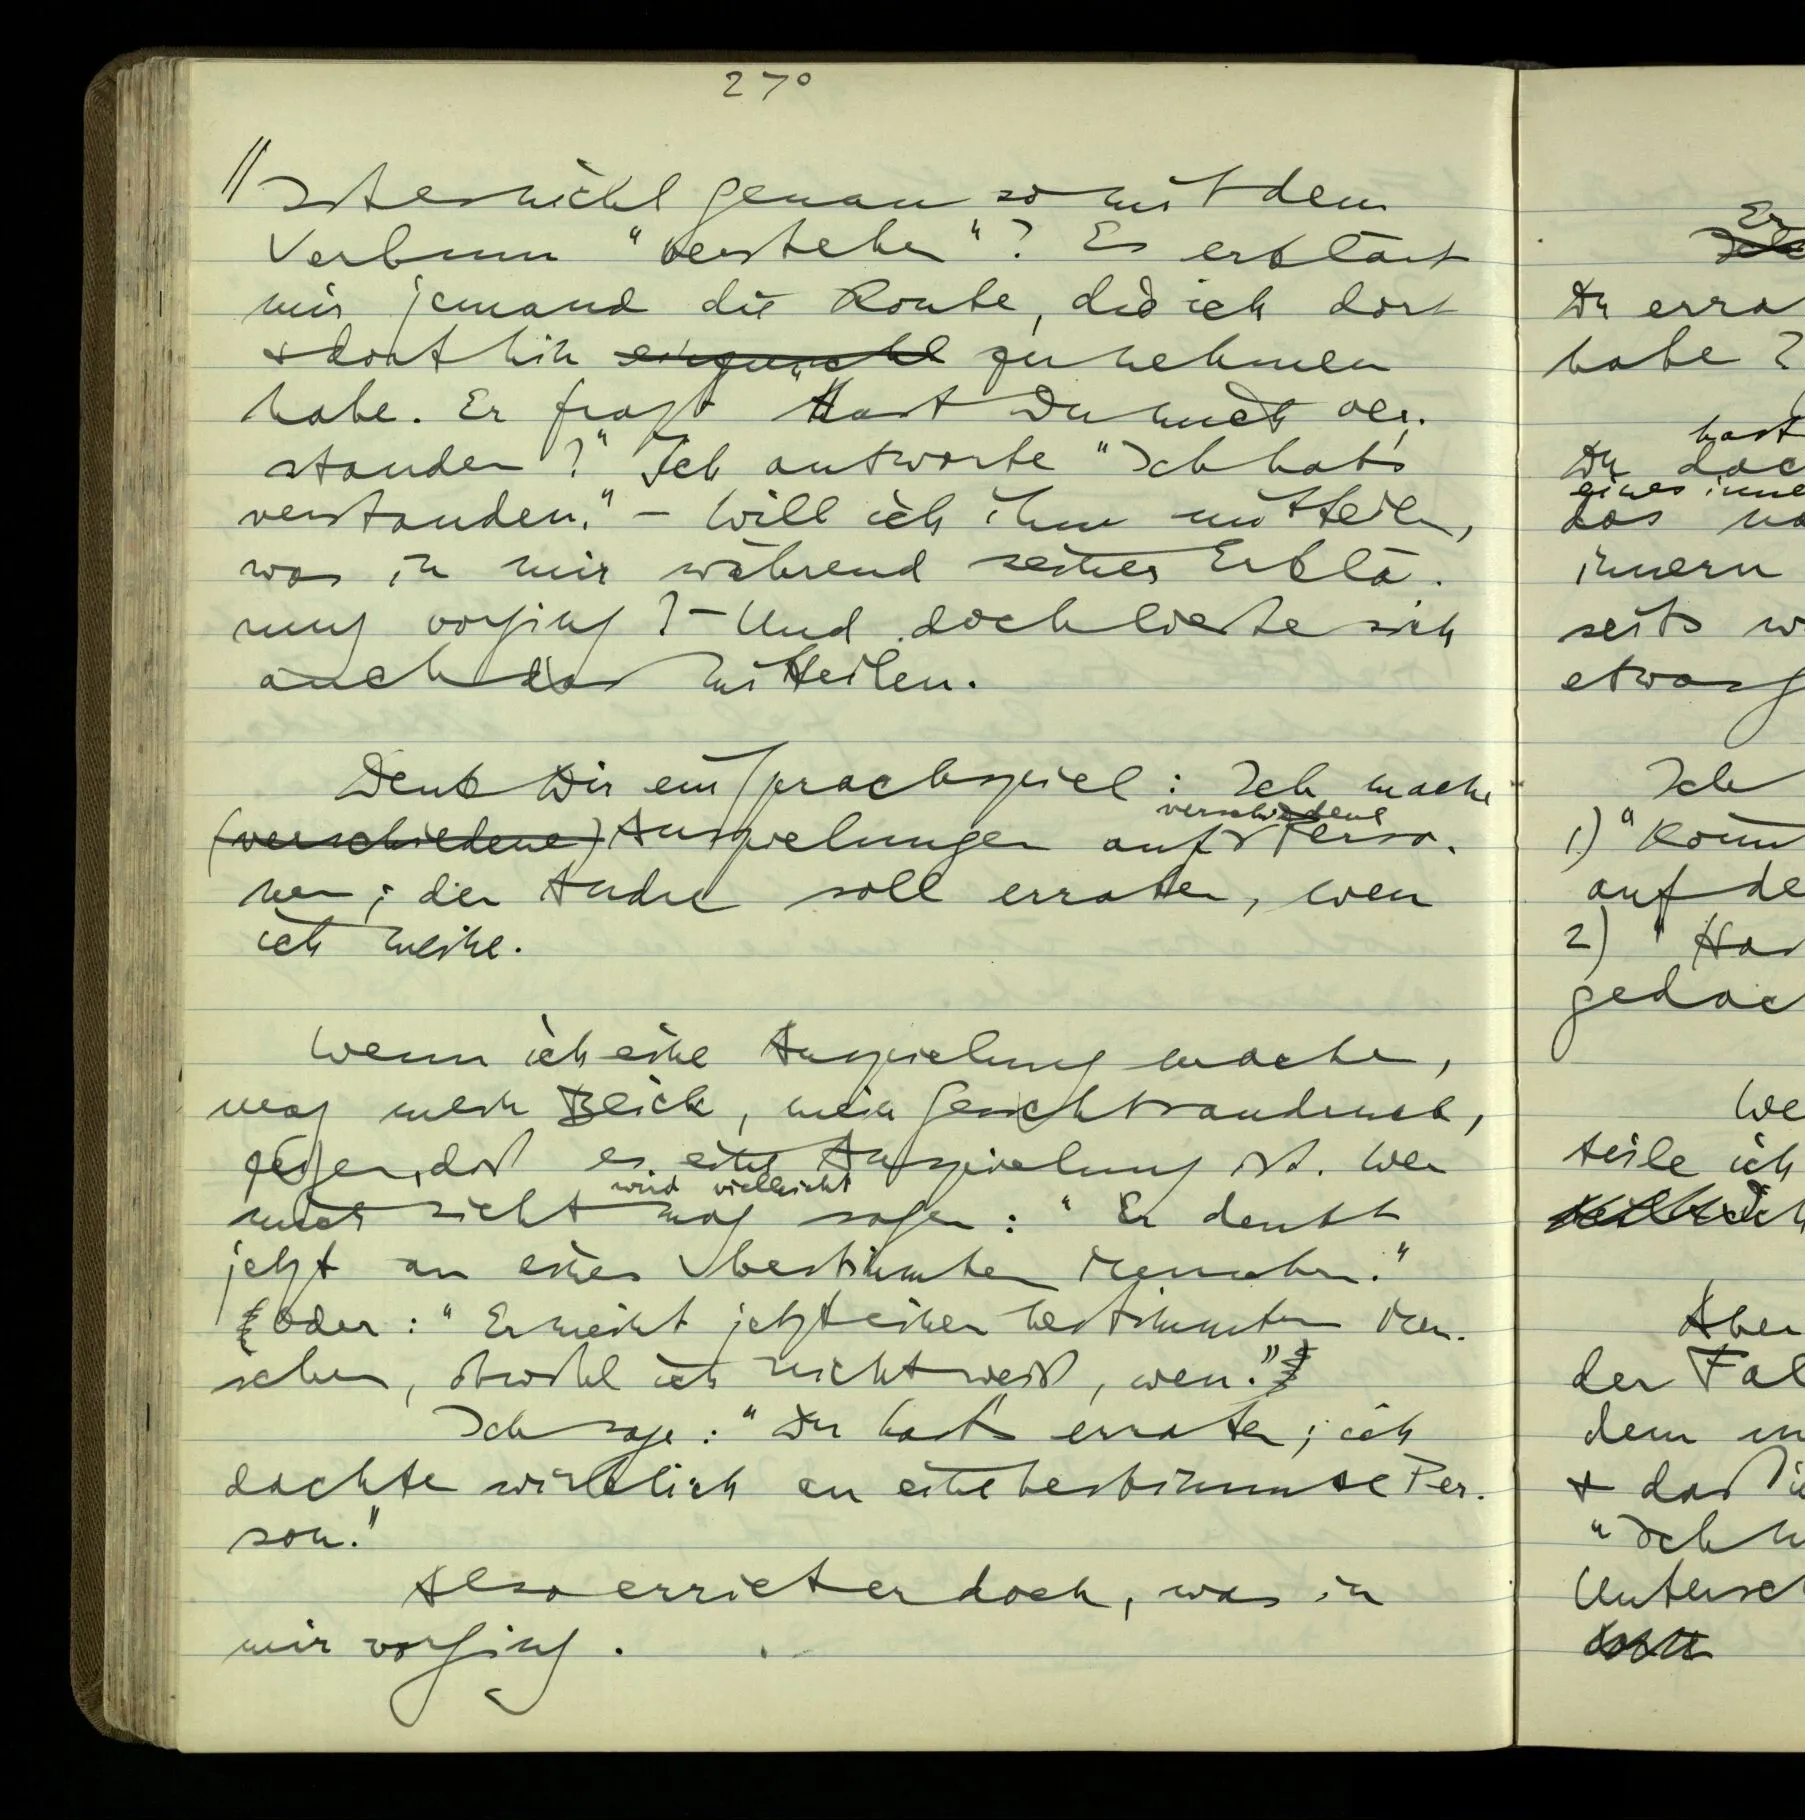 270
// Ist es nicht genau so mit dem
Verbum "verstehen"? Es erklärt
mir jemand die Route, die ich dort
& dorthin zu nehmen
habe. Er fragt "Hast Du mich ver-
standen?" Ich antworte "Ich hab's
verstanden." – Will ich ihm mitteilen,
was in mir während seiner Erklä-
rung vorging? – Und doch ließe sich
auch das mitteilen.
Denk Dir ein Sprachspiel: Ich mache
verschiedene
(verschiedene) Anspielungen auf Perso-
nen; der Andre soll erraten, wen
ich meine.
Wenn ich eine Anspielung mache,
mag mein Blick, mein Gesichtsausdruck,
zeigen, daß es eine Anspielung ist. Wer
wird vielleicht
mich sieht mag sagen: "Er denkt
jetzt an einen bestimmten Menschen."
Oder: "Er meint jetzt einen bestimmten Men-
schen, obwohl ich nicht weiß, wen."
Ich sage: "Du hast's erraten; ich
dachte wirklich an eine bestimmte Per-
son."
Also erriet er doch, was in
mir vorging.
Er
Du erra
habe?
hast
Du doc
eines inne
das
innern
seits w
etwas g
Ich
1) "Komm
auf de
2) "Has
gedac
We
teile ich
Aber
der Fal
dem
& das
"Ich
Untersch